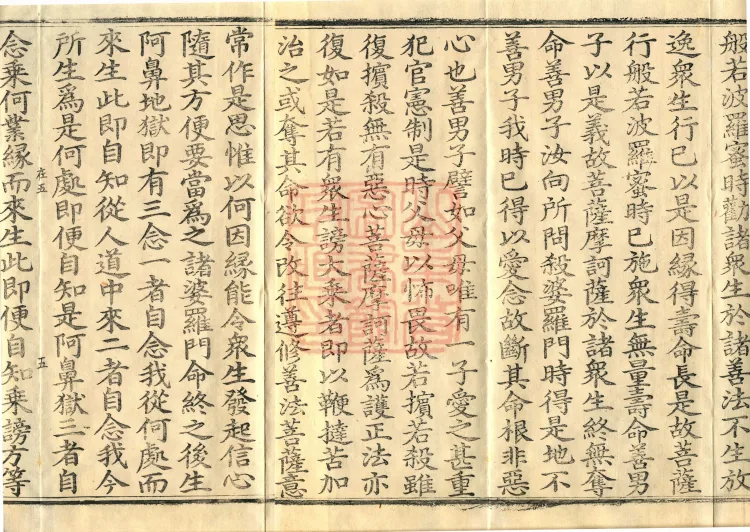 般若波羅蜜時勸諸衆生於諸善法不生放
逸衆生行已以是因縁得壽命長是故菩薩
行般若波羅蜜時已施衆生無量壽命善男
子以是義故菩薩摩訶薩於諸衆生終無奪
命善男子汝向所問殺婆羅門時得是地不
善男子我時已得以愛念故斷其命根非惡
心也善男子譬如父母唯有一子愛之甚重
犯官憲制是時父母以怖畏故若擯若殺雖
復擯殺無有惡心菩薩摩訶薩爲護正法亦
復如是若有衆生謗大乗者即以鞭撻苦加
治之或奪其命欲令改往遵修善法菩薩意
常作是思惟以何因縁能令衆生發起信心
隨其方便要當爲之諸婆羅門命終之後生
阿鼻地獄即有三念一者自念我從何處而
來生此即自知從人道中來二者自念我今
所生爲是何處即便自知是阿鼻獄三者自
在五 五
念乗何業縁而來生此即便自知乗謗方等